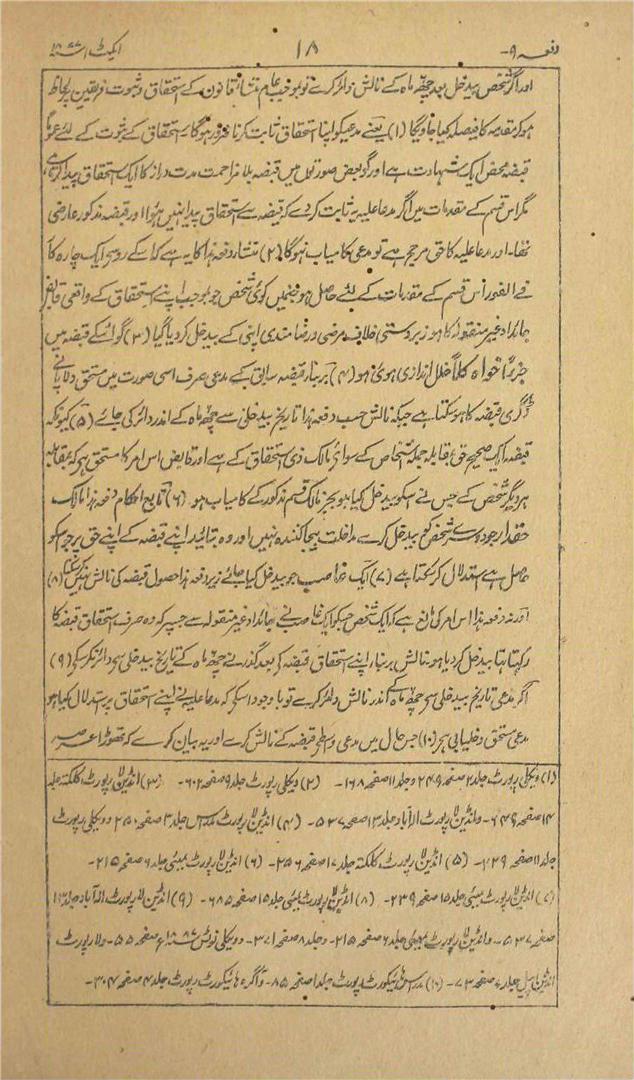 دفعہ ۹-
۱۸
ایکٹ ۱ سنہ ۱۸۷۷
اور اگر شخص بیدخل بعد چھ ماہ کے نالش دائر کرے تو بموجب عام منشاء قانون کے استحقاق و ثبوت فریقین پر لحاظ
ہو کر مقدمہ کا فیصلہ کیا جاویگا (۱) یعنے مدعی کو اپنا استحقاق ثابت کرنا ضرور ہوگا۔ استحقاق کے ثبوت کے لئے عموماً
قبضہ محض ایک شہادت ہے اور گو بعض صورتوں میں قبضہ بلا مزاحمت مدت دراز کا ایک استحقاق پیدا کرتا ہے،
مگر اس قسم کے مقدمات میں اگر مدعا علیہ یہ ثابت کر دے کہ قبضہ سے استحقاق پیدا نہیں ہوا اور قبضہ مذکور عارضی
تھا۔ اور مدعا علیہ کا حق مرجح ہے تو مدعی کامیاب نہ ہوگا (۲) منشاء دفعہ ہذا کا یہ ہے کہ اسکے رو سے ایک چارہ کار
فی الفور اس قسم کے مقدمات کے لئے حاصل ہو جنمیں کوئی شخص جو بموجب اپنے استحقاق کے واقعی قابض
جائداد غیر منقولہ کا ہو زبردستی خلاف مرضی و رضامندی اپنی کے بیدخل کر دیا گیا (۳) گو اسکے قبضہ میں
جزءاً خواہ کلاً خلل اندازی ہوئی ہو (۴) بر بناء قبضہ سابق کے مدعی صرف اسی صورت میں مستحق دلاپانے
ڈگری قبضہ کا ہو سکتا ہے جبکہ نالش حسب دفعہ ہذا تاریخ بیدخلی سے چھ ماہ کے اندر دائر کی جائے (۵) کیونکہ
قبضہ ایک صحیح حق بمقابلہ جملہ اشخاص کے سوائے مالک ذی استحقاق کے ہے اور قابض اس امر کا مستحق ہے کہ بمقابلہ
ہر دیگر شخص کے جس نے اسکو بیدخل کیا ہو بجز مالک قسم مذکور کے کامیاب ہو (۶) تابع احکام دفعہ ہذا مالک
حقدار جو دوسرے شخص کو بیدخل کرے مداخلت بیجا کنندہ نہیں اور وہ بتائید اپنے قبضہ کے اپنے حق پر جو اسکو
حاصل ہے استدلال کر سکتا ہے (۷) ایک غاصب جو بیدخل کیا جائے زیر دفعہ ہذا حصول قبضہ کی نالش نہیں کر سکتا (۸)
اور نہ دفعہ ہذا اس امر کی مانع ہے کہ ایک شخص جسکو ایک غاصب نے جائداد غیر منقولہ سے جسپر کہ وہ صرف استحقاق قبضہ کا
رکھتا تھا بیدخل کر دیا ہو نالش بر بناء اپنے استحقاق قبضہ کے بعد گذرنے چھ ماہ کے تاریخ بیدخلی سے دائر نکر سکے (۹)
اگر مدعی تاریخ بیدخلی سے چھ ماہ کے اندر نالش دائر کرے تو باوجود اسکے کہ مدعا علیہ نے اپنے استحقاق پر استدلال کیا ہو
مدعی مستحق دخلیابی ہے (۱۰) جس حال میں مدعی واسطے قبضہ کے نالش کرے اور یہ بیان کرے کہ تھوڑا عرصہ
(۱) ویکلی رپورٹ جلد ۲ صفحہ ۲۴۹ و جلد ۱۱ صفحہ ۱۶۸- (۲) ویکلی رپورٹ جلد ۹ صفحہ ۶۰۲- (۳) انڈین لا رپورٹ کلکتہ جلد
۱۴ صفحہ ۶۴۹- و انڈین لا رپورٹ الہ آباد جلد ۱۳ صفحہ ۵۳۷- (۴) انڈین لا رپورٹ مدراس جلد ۳ صفحہ ۲۵۰ و ویکلی رپورٹ
جلد ۱۱ صفحہ ۲۲۹- (۵) انڈین لا رپورٹ کلکتہ جلد ۱۷ صفحہ ۲۵۶- (۶) انڈین لا رپورٹ بمبئی جلد ۶ صفحہ ۲۱۵-
(۷) انڈین لا رپورٹ بمبئی جلد ۱۵ صفحہ ۲۳۹- (۸) انڈین لا رپورٹ بمبئی جلد ۱۵ صفحہ ۶۸۵- (۹) انڈین لا رپورٹ الہ آباد جلد ۱۳
صفحہ ۵۳۷- و انڈین لا رپورٹ بمبئی جلد ۶ صفحہ ۲۱۵- و جلد ۸ صفحہ ۳۷۱- و ویکلی نوٹس سنہ ۱۸۸۷ع صفحہ ۵۵- و لا رپورٹ
انڈین اپیل جلد ۷ صفحہ ۷۳- (۱۰) مدراس ہائیکورٹ رپورٹ جلد ۱ صفحہ ۸۵- و آگرہ ہائیکورٹ رپورٹ جلد ۴ صفحہ ۳۰۴-